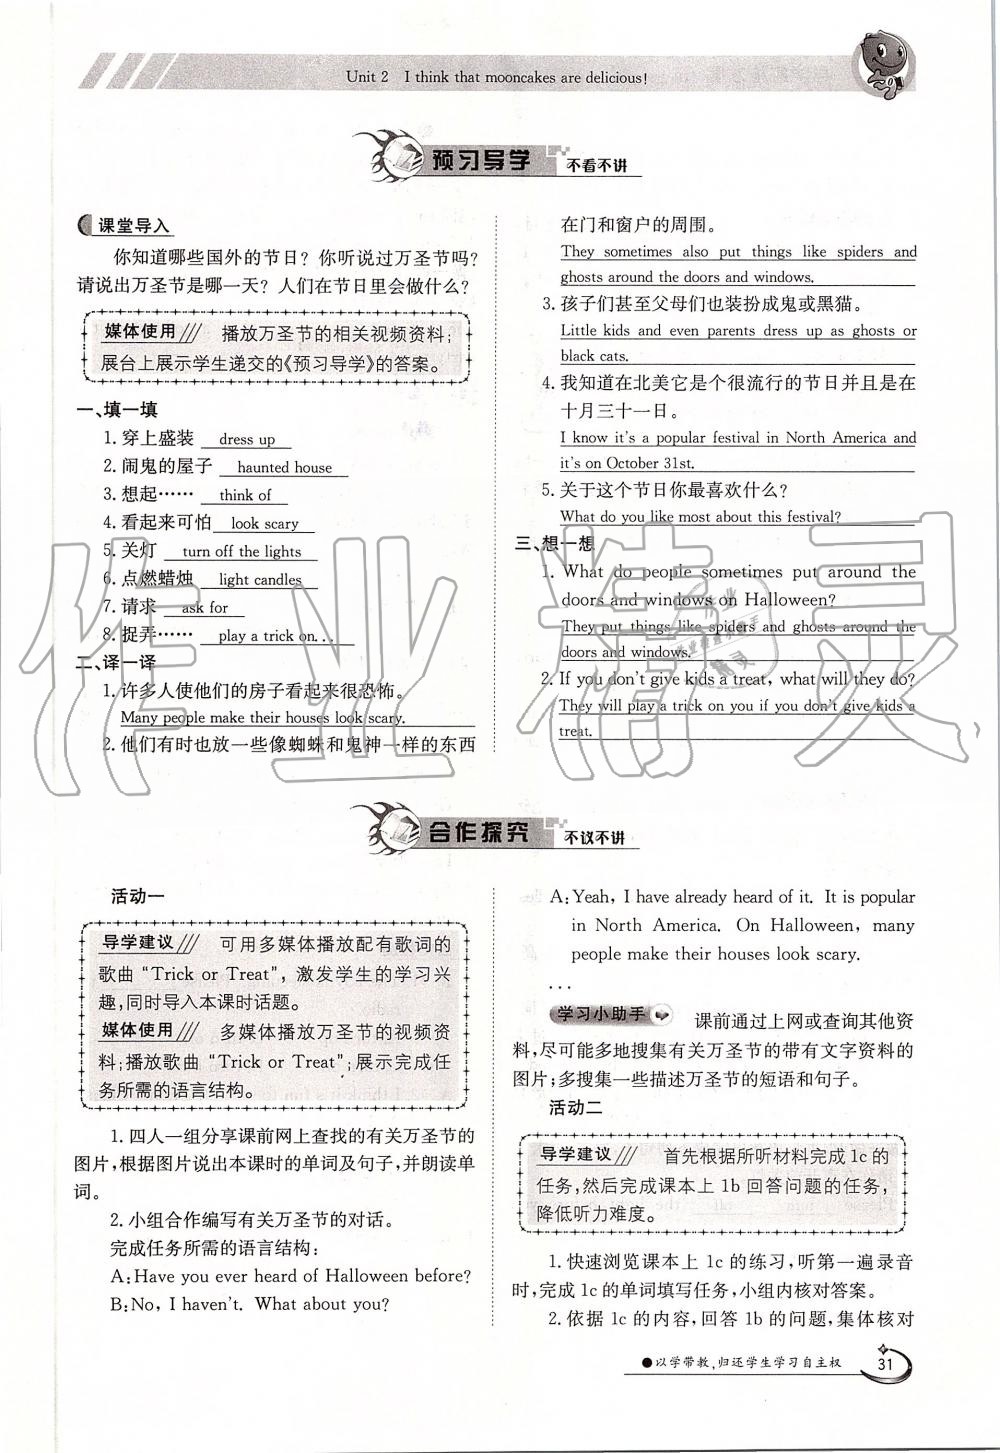 Unit 2 I think that mooncakes are delicious!
预习导学 不看不讲
课堂导入
你知道哪些国外的节日？你听说过万圣节吗？
请说出万圣节是哪一天？人们在节日里会做什么？
媒体使用/// 播放万圣节的相关视频资料；
展台上展示学生递交的《预习导学》的答案。
一、填一填
1. 穿上盛装 dress up
2. 闹鬼的屋子 haunted house
3. 想起…… think of
4. 看起来可怕 look scary
5. 关灯 turn off the lights
6. 点燃蜡烛 light candles
7. 请求 ask for
8. 捉弄…… play a trick on...
二、译一译
1. 许多人使他们的房子看起来很恐怖。
Many people make their houses look scary.
2. 他们有时也放一些像蜘蛛和鬼神一样的东西
在门和窗户的周围。
They sometimes also put things like spiders and
ghosts around the doors and windows.
3. 孩子们甚至父母们也装扮成鬼或黑猫。
Little kids and even parents dress up as ghosts or
black cats.
4. 我知道在北美它是个很流行的节日并且是在
十月三十一日。
I know it's a popular festival in North America and
it's on October 31st.
5. 关于这个节日你最喜欢什么？
What do you like most about this festival?
三、想一想
1. What do people sometimes put around the
doors and windows on Halloween?
They put things like spiders and ghosts around the
doors and windows.
2. If you don't give kids a treat, what will they do?
They will play a trick on you if you don't give kids a
treat.
合作探究 不议不讲
活动一
导学建议/// 可用多媒体播放配有歌词的
歌曲“Trick or Treat”，激发学生的学习兴
趣，同时导入本课时话题。
媒体使用/// 多媒体播放万圣节的视频资
料；播放歌曲“Trick or Treat”；展示完成任
务所需的语言结构。
1. 四人一组分享课前网上查找的有关万圣节的
图片，根据图片说出本课时的单词及句子，并朗读单
词。
2. 小组合作编写有关万圣节的对话。
完成任务所需的语言结构：
A: Have you ever heard of Halloween before?
B: No, I haven't. What about you?
A: Yeah, I have already heard of it. It is popular
in North America. On Halloween, many
people make their houses look scary.
...
学习小助手 课前通过上网或查询其他资
料，尽可能多地搜集有关万圣节的带有文字资料的
图片；多搜集一些描述万圣节的短语和句子。
活动二
导学建议/// 首先根据所听材料完成 1c 的
任务，然后完成课本上 1b 回答问题的任务，
降低听力难度。
1. 快速浏览课本上 1c 的练习，听第一遍录音
时，完成 1c 的单词填写任务，小组内核对答案。
2. 依据 1c 的内容，回答 1b 的问题，集体核对
●以学带教，归还学生学习自主权 31
作业精灵